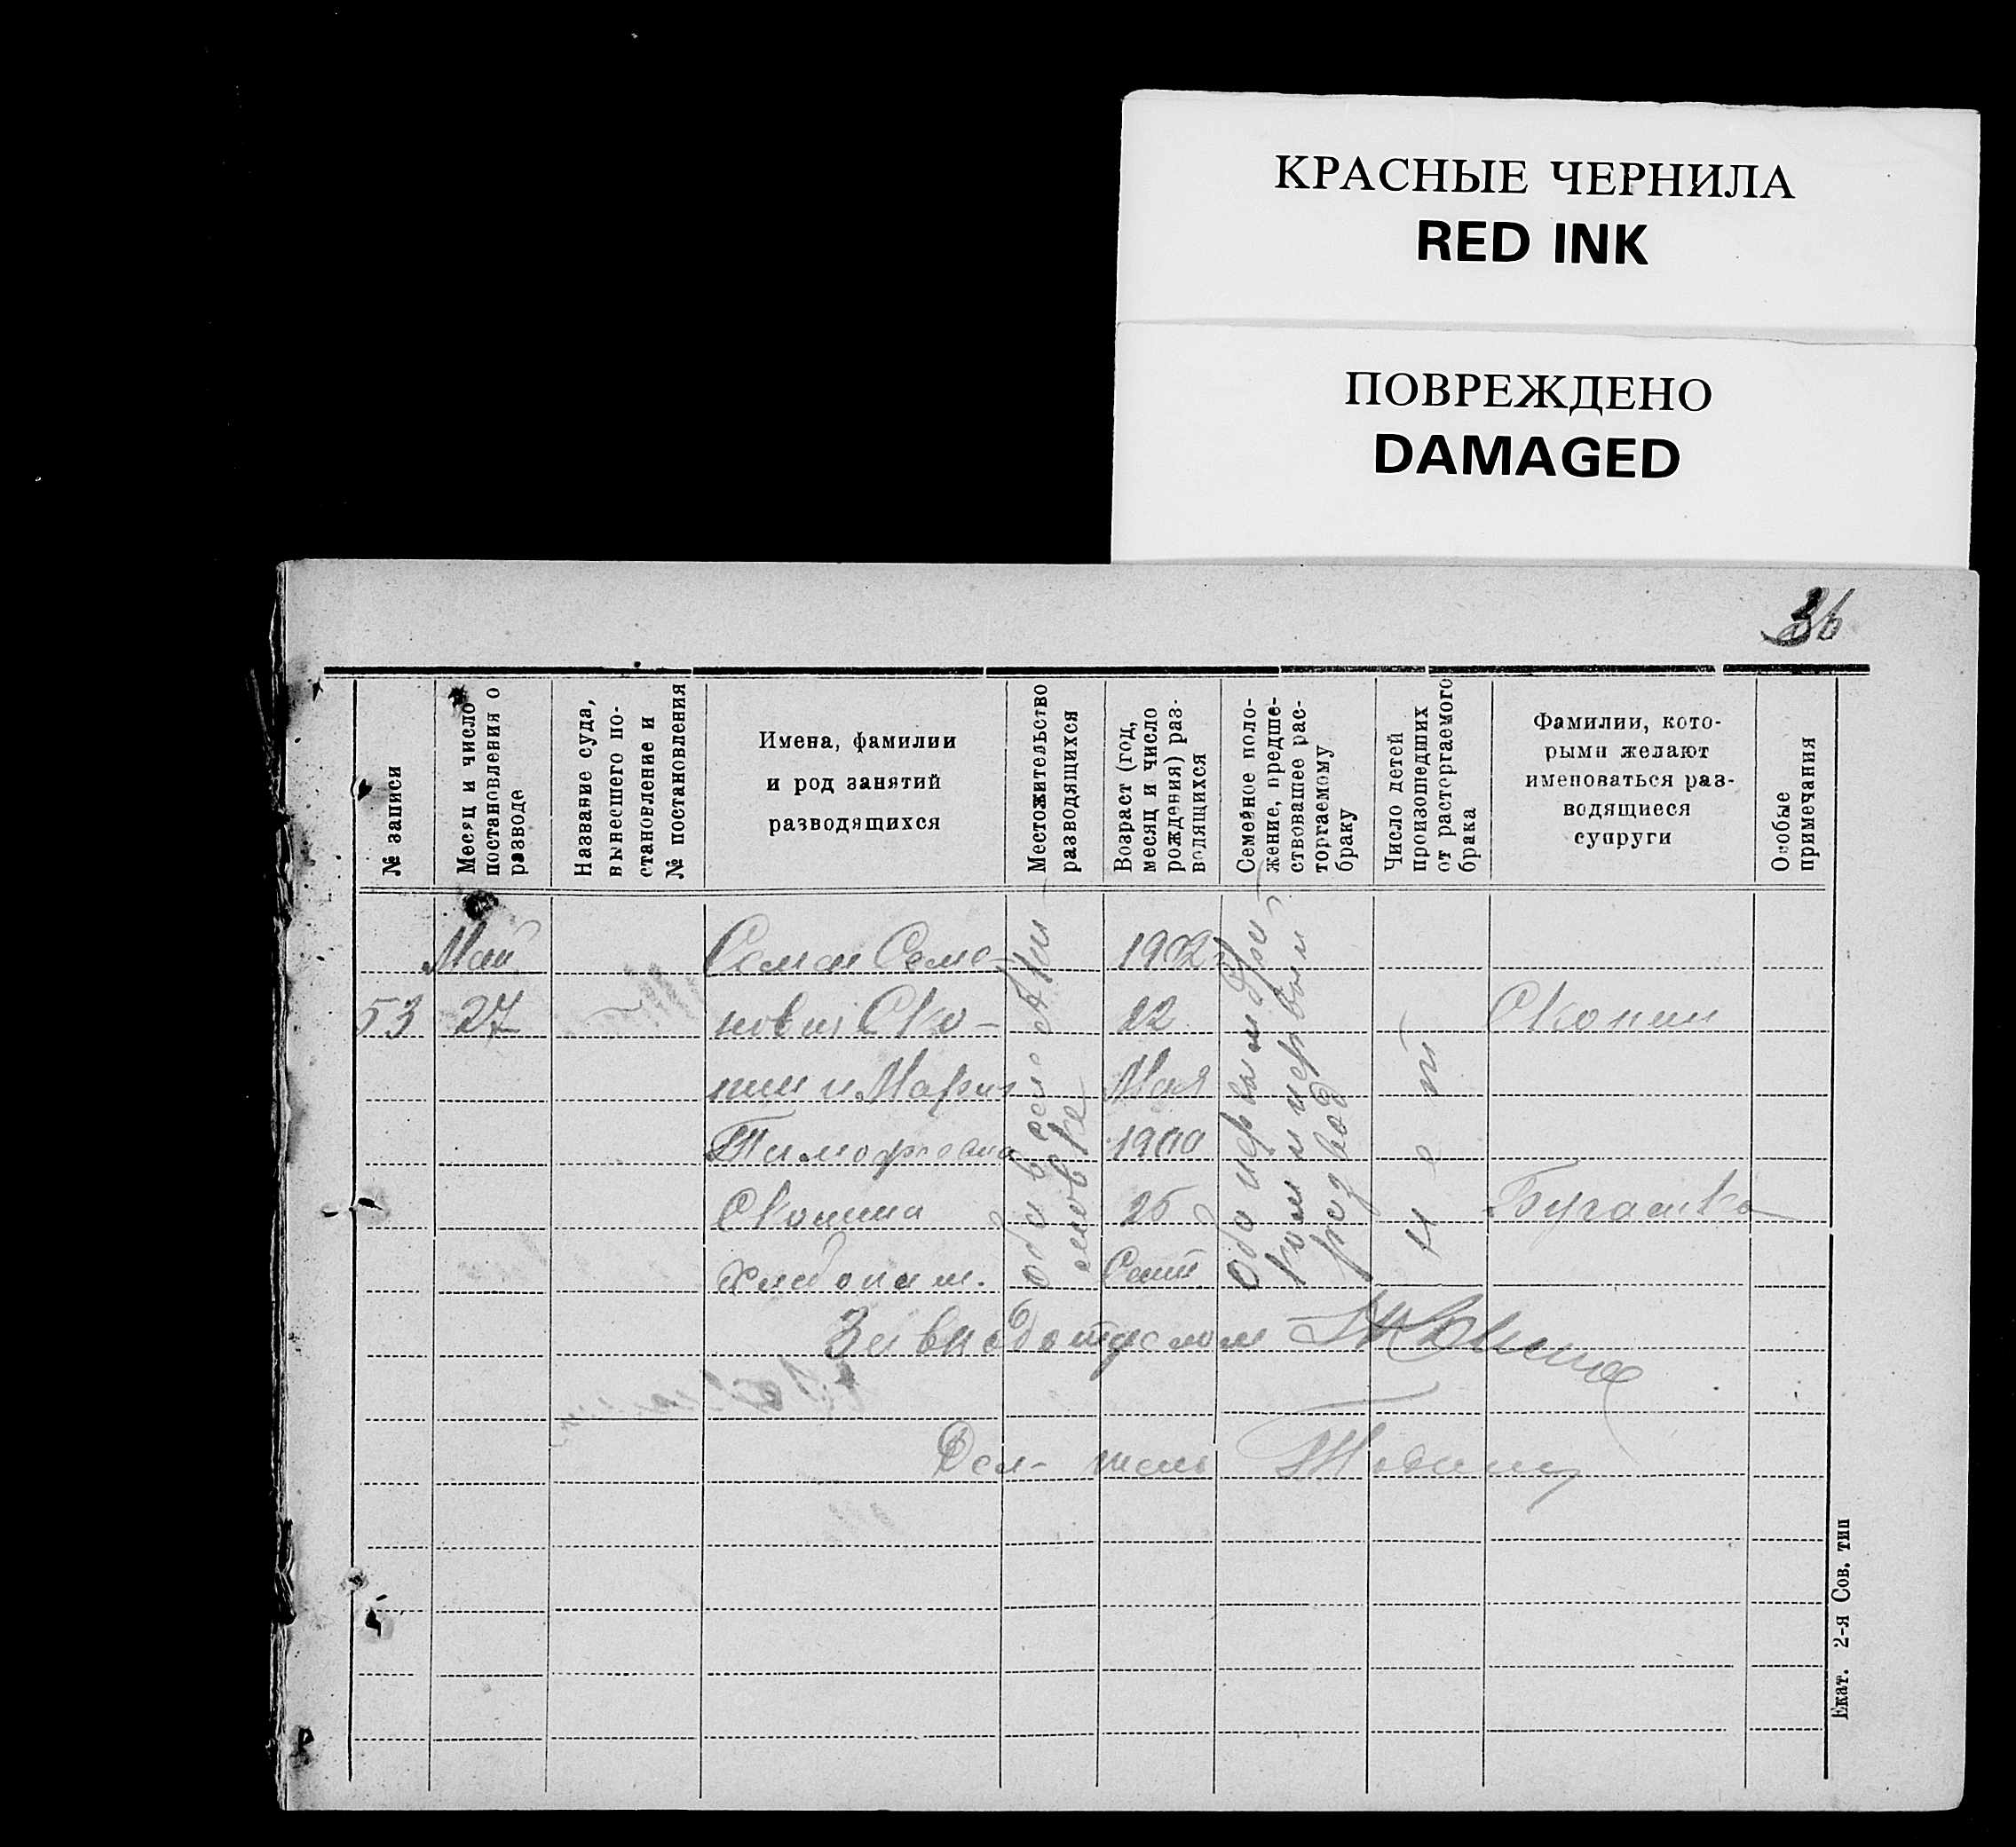 КРАСНЫЕ ЧЕРНИЛА
RED INK
ПОВРЕЖДЕНО
DAMAGED
36
№ записи
Месяц и число
постановления о
разводе
Название суда,
вынесшего по-
становление и
№ постановления
Имена, фамилии
и род занятий
разводящихся
Местожительство
разводящихся
Возраст (год,
месяц и число
рождения) раз-
водящихся
Семейное поло-
жение, предше-
ствовавшее рас-
торгаемому
браку
Число детей
произошедших
от расторгаемого
брака
Фамилии, кото-
рыми желают
именоваться раз-
водящиеся
супруги
Особые
примечания
Май
53 27
Семен Семе-
нович Ско-
пин и Мария
Тимофеевна
Скопина
хлебопаш.
оба в селе
1902
22
Мая
1900
25
Сент
оба первым бра-
ком и первый
развод
нет
Скопин
Зав подотделом
Дел-тель
Екат. 2-я Сов. тип